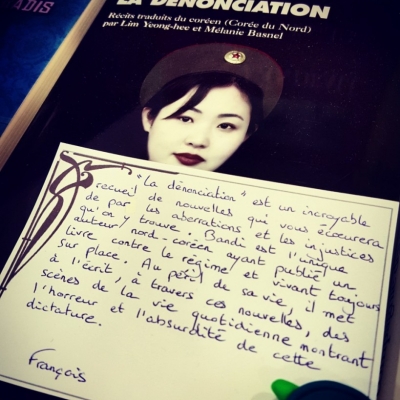 ADIS
LA DÉNONCIATION
Récits traduits du coréen (Corée du Nord)
par Lim Yeong-hee et Mélanie Basnel
"La dénonciation" est un incroyable
recueil de nouvelles qui vous écœurera
de par les aberrations et les injustices
qu'on y trouve. Bandi est l'unique
auteur nord-coréen ayant publié un
livre contre le régime et vivant toujours
sur place. Au péril de sa vie, il met
à l'écrit, à travers ces nouvelles, des
scènes de la vie quotidienne montrant
l'horreur et l'absurdité de cette
dictature.
François